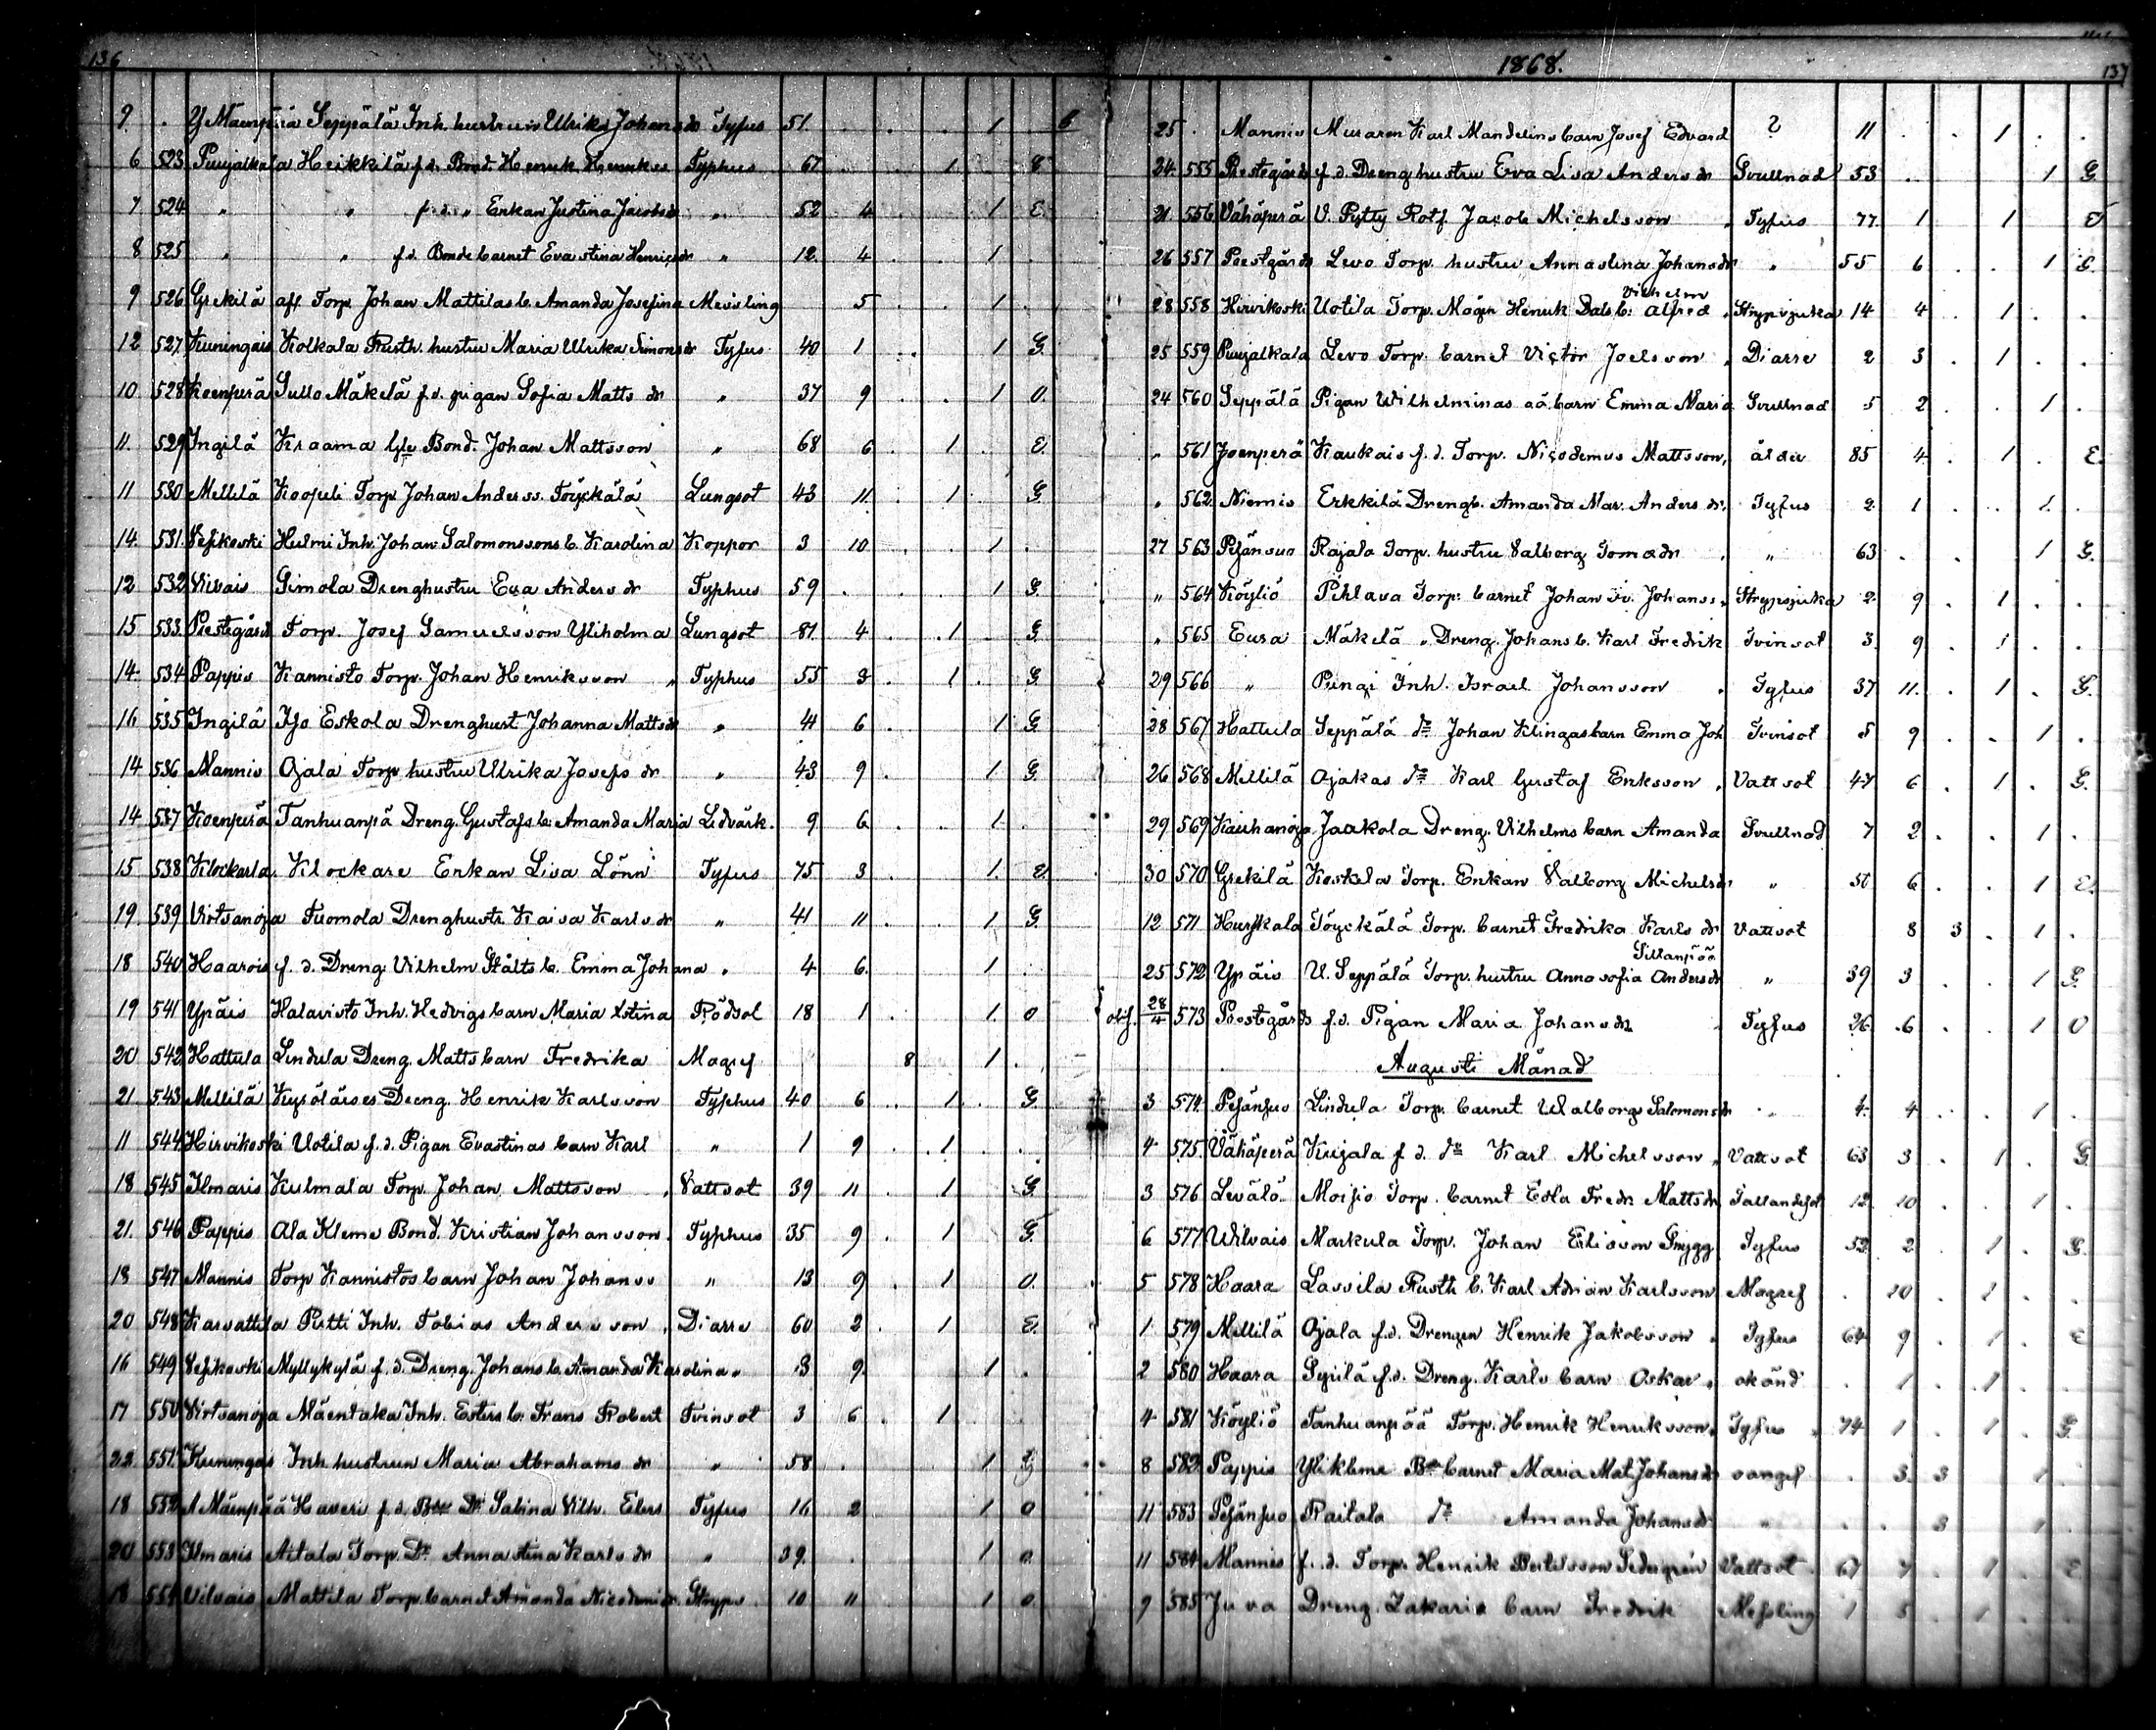 136
9. Y Mäenpää Seppälä Inh. hustrun Ulrika Johansdr Typus 51. 1
6 523 Punjalkala Heikkilä f.d. Bond. Henrik Henrikss Typhus 67. 1 E
7 524 " " f.d. " Enkan Justina Jacobsdr " 52 4 1 E.
8 525 " " f.d. Bonde barnet Eva stina Henricsdr " 12 4 1
9 526 Grekilä afl Torp Johan Mattilas b. Amanda Josefina Messling 5 1
12 527 Kuningais Kolkala Rusth. hustru Maria Ulrika Simonsdr Tyfus 40 1 1 G.
10 528 Koenperä Sullo Mäkelä f.d. pigan Sofia Matts dr " 37 9 1 O.
11. 529 Ingilä Kraama Gle Bond. Johan Mattsson " 68 6 1 E.
11 530 Mellilä Koopeli Torp Johan Anderss. Töyckälä Lungsot 43 11. 1 G.
14. 531. Vesikoski Helmi Inh. Johan Salomonssons b. Karolina Koppor 3 10 1
12 532 Vilvais Simola Drenghustru Eva Anders dr Typhus 59 1 G.
15 533. Prestegård Torp. Josef Samuelsson Yliholma Lungsot 81. 4 1 G.
14. 534 Pappis Kannisto Torp. Johan Henriksson Typhus 55 8 1 G.
16 535 Ingilä Iso Eskola Drenghust Johanna Mattsdr " 4 6 1 G.
14 536 Mannis Ojala Torp hustru Ulrika Josefs dr " 43 9 1 G.
14 537 Koenperä Tanhuanpä Dreng. Gustafs b. Amanda Maria Ledvärk. 9 6 1
15 538 Klockarla Klockare Enkan Lisa Lönn Tyfus 75 3 1. E.
19 539 Virtsanoja Tuomola Drenghustr. Kaisa Karlsdr " 41 11 1 G.
18 540 Haarois f.d. Dreng Vilhelm Stålts b. Emma Johana " 4 6. 1
19 541 Ypäis Halavisto Inh. Hedvigs barn Maria Xstina Rödsot 18 1 1. O
20 542 Hattula Lindula Dreng. Matts barn Fredrika Magref 8 1
21. 543 Mellilä Kyröläises Dreng. Henrik Karlsson Typhus 40 6 1. G.
11 544 Hirvikoski Uotila f.d. Pigan Evastinas barn Karl " 1 9 1
18 545 Ilmaris Kulmala Torp. Johan Mattsson Vattsot 39 11 1 G.
21. 546 Pappis Ala Kleme Bond. Kristian Johansson. Typhus 35 9 1 G.
18 547 Mannis Torp Kannistos barn Johan Johanss " 13 9 1 O.
20 548 Karvattila Petti Inh. Tobias Andersson Diarre 60 2 1 E.
16 549 Vesikoski Myllykylä f.d. Dreng. Johans b. Amanda Karolina " 3 9. 1
17 550 Virtsanoja Mäentaka Inh. Esters b. Frans Robert Tvinsot 3 6 1
22 551 Kuningas Inh. hustrun Maria Abrahams dr " 58 1 G
18 552 A Mäenpää Haveri f.d. Bde Dr Sabina Vilh. Eliers Tyfus 16 2 1 O
20 553 Ilmaris Aitala Torp. Dr Anna stina Karls dr " 39. 1 O.
18 554 Vilvais Mattila Torp. barnet Amanda Nicodemidr Stryps. 10 11 1 O
1868.
137
25 Mannis Muraren Karl Mandelins barn Josef Edvard ? 11 1
24. 555 Prestegårds f.d. Dreng hustru Eva Lisa Anders dr Svullnad 53 1 G
21 556 Vähäperä V. Pytty Rotf. Jacob Michelsson Tyfus 77. 1 1 E
26 557 Prestgårds Levo Torp. hustru Annastina Johansdr " 55 6 1 G.
Vilhelm
28 558 Hirvikoski Uotila Torp. Mågen Henrik Dals b: Alfred Strypsjuka 14 4 1
25 559 Punjalkala Levo Torp. barnet Victor Joelsson Diarre 2 3 1
24 560 Seppälä Pigan Wilhelminas oä. barn Emma Maria Svullnad 5 2 1
" 561 Joenperä Kaukais f.d. Torp. Nicodemus Mattsson, ålder 85 4. 1 E.
" 562. Niemis Erkkilä Drengb. Amanda Mar. Anders dr. Tyfus 2 1 1.
27 563 Pesänsuo Rajala Torp. hustru Valborg Tomadr " 63 1 G.
" 564 Köyliö Pehlava Torp. barnet Johan Johanss. Strypsjuka 2 9 1
" 565 Eura Mäkelä " Dreng. Johans b. Karl Fredrik Tvinsot 3. 9 1
29 566 " Pungi Inh. Israel Johansson Tyfus 37 11. 1 G.
28 567 Hattula Seppälä do Johan Klingas barn Emma Joh Tvinsot 5 9 1
26 568 Mellilä Ojakas do Karl Gustaf Eriksson Vattsot 47 6 1 G.
29 569 Kauhanoja Jaakola Dreng. Vilhelms barn Amanda Svullnad 7 2 1
30 570 Grekilä Koskela Torp. Enkan Valborg Michelsdr " 50 6 1 E.
12 571 Hurskala Töyckälä Torp. barnet Fredrika Karls dr Vattsot 8 3 1
Sillanpää
25 572 Ypäis U. Seppälä Torp. hustru Anna sofia Andersdr " 39 3 1 G.
28/4 573 Prestgårds f.d. Pigan Maria Johansdr Tyfus 26. 6 1 O
Augusti Månad
3 574. Pesänsuo Lindula Torp. barnet Walborg Salomonsdr " 4. 4 1
4 575. Vähäperä Kuijala f.d. do Karl Michelsson Vattsot 63 3 1 G.
3 576 Levälä Moisio Torp. barnet Eola Fredr. Mattsdr Fallandesot 12 10 1
6 577 Wilvais Markula Torp. Johan Elisson Snygg Tyfus 52 2 1 G.
5 578 Haara Lassila Rusth b. Karl Adrian Karlsson Magref 10 1
1 579 Mellilä Ojala f.d. Drengen Henrik Jakobsson Tyfus 64 9 1 E
2 580 Haara Sepilä f.d. Dreng. Karls barn Oskar okänd 1 1
4 581 Köyliö Tanhuanpää Torp. Henrik Henriksson Tyfus 74 1 1 G.
8 582 Pappis Ylikleme Bde barnet Maria Mat. Johansdr oangif 3. 3 1
11 583 Pesänsuo Raitala do Amanda Johansdr " 3 1
11 584 Mannis f.d. Torp. Henrik Bertilsson Sedergrén Vattsot 67 7 1 E
9 585 Juva Dreng. Zakaris barn Fredrik Messling 1 5 1